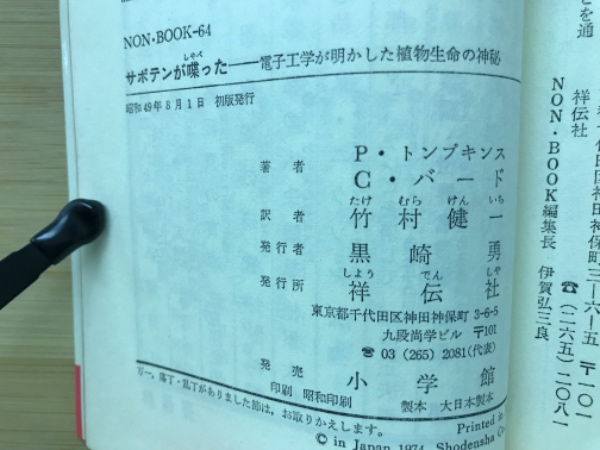 NON・BOOK-64
しゃべ
サボテンが喋った――電子工学が明かした植物生命の神秘
昭和49年8月1日 初版発行
著者 P・トンプキンス
C・バード
たけ むら けん いち
訳者 竹村健一
発行者 黒崎勇
しよう でん しや
発行所 祥伝社
東京都千代田区神田神保町 3-6-5
九段尚学ビル 〒101
☎ 03 (265) 2081(代表)
発売 小学館
万一、落丁・乱丁がありました節は、お取りかえします。
印刷 昭和印刷 製本 大日本製本
Printed in
© in Japan 1974, Shodensha Co
を通
千代田区神田神保町三―六―五 〒一〇一
祥伝社 ☎(二六五)二〇八一
NON・BOOK編集長 伊賀弘三良